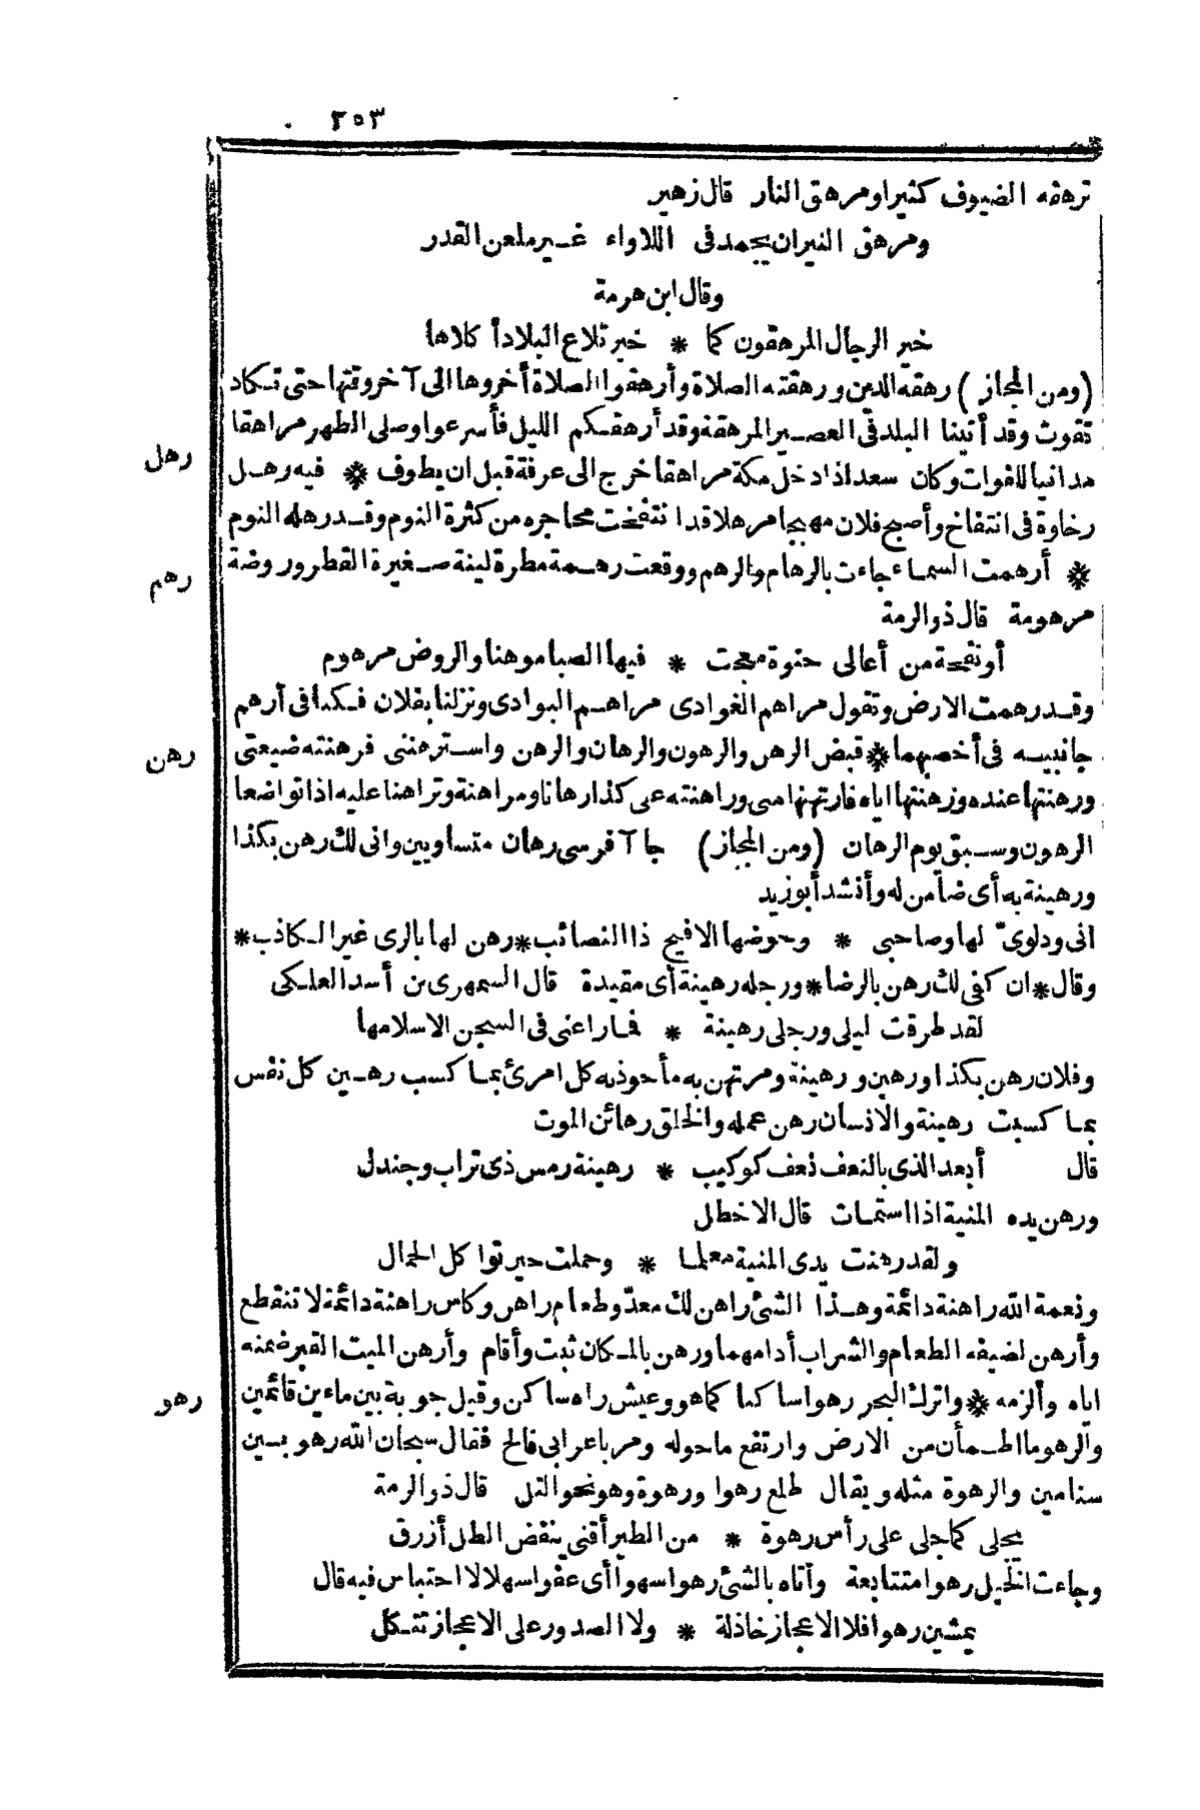 ٢٥٣
ترهقه الضيوف كثيرا ومرهق النار قال زهير
ومرهق النيران يحمد فى اللاواء غير ملعن القدر
وقال ابن هرمة
خير الرجال المرهقون كما * خير تلاع البلاد أ كلاها
(ومن المجاز) رهقه الدين ورهقته الصلاة وأرهقوا الصلاة أخروها الى آخر وقتها حتى تكاد
تفوت وقد أتينا البلد فى العصير المرهقة وقد أرهقكم الليل فأسرعوا وصلى الظهر مراهقا
مدانيا للفوات وكان سعد اذا دخل مكة مراهقا خرج الى عرفة قبل ان يطوف * فيه رهل
رهل
رخاوة فى انتفاخ وأصبح فلان مهبجا مرهلا قد انتفخت محاجره من كثرة النوم وقد رهله النوم
* أرهمت السماء جاءت بالرهام والرهم ووقعت رهمة مطرة لينة صغيرة القطر وروضة
رهم
مرهومة قال ذو الرمة
أونفحة من أعالى حنوة معجت * فيها الصبا موهنا والروض مرهوم
وقد رهمت الارض وتقول مراهم الغوادى مراهم البوادى ونزلنا بفلان فكنا فى أرهم
جانبيه فى أخصبهما * قبض الرهن والرهون والرهان والرهن واسترهننى فرهنته ضيعتى
رهن
ورهنتها عنده ورهنتها اياه فارتهنها منى وراهنته على كذا رهانا ومراهنة وتراهنا عليه اذا تواضعا
الرهون وسبق يوم الرهان (ومن المجاز) جا آ فرسى رهان متساويين وانى لك رهن بكذا
ورهينة به أى ضامن له وأنشد أبو زيد
انى ودلوىّ لها وصاحبى * وحوضها الافيح ذا النصائب * رهن لها بالرى غير الكاذب *
وقال * ان كفى لك رهن بالرضا * ورجله رهينة أى مقيدة قال السمهرى بن أسد العلكى
لقد طرقت ليلى ورجلى رهينة * فما راعنى فى السجن الاسلامها
وفلان رهن بكذا ورهين ورهينة ومرتهن به مأخوذ به كل امرئ بما كسب رهين كل نفس
بما كسبت رهينة والانسان رهن عمله والخلق رهائن الموت
قال أبعد الذى بالنعف نعف كوكيب * رهينة رمس ذى تراب وجندل
ورهن يده المنية اذا استمات قال الاخطل
ولقد رهنت يدى المنية معلما * وحملت حين توا كل الحمال
ونعمة الله راهنة دائمة وهذا الشئ راهن لك معدّ وطعام راهن وكاس راهنة دائمة لا تنقطع
وأرهن لضيفه الطعام والشراب أدامهما ورهن بالمكان ثبت وأقام وأرهن الميت القبر ضمنه
اياه وألزمه * واترك البحر رهوا ساكنا كما هو وعيش راه ساكن وقيل جوبة بين ماءين قائمين
رهو
والرهو ما اطمأن من الارض وارتفع ما حوله ومر باعرابى فالج فقال سبحان الله رهو بين
سنامين والرهوة مثله ويقال طلع رهوا ورهوة وهو نحو التل قال ذو الرمة
يجلى كما جلى على رأس رهوة * من الطير أقنى ينفض الطل أزرق
وجاءت الخيل رهوا متتابعة وأتاه بالشئ رهوا سهوا أى عفوا سهلا لا احتباس فيه قال
يمشين رهوا فلا الاعجاز خاذلة * ولا الصدور على الاعجاز تتكل